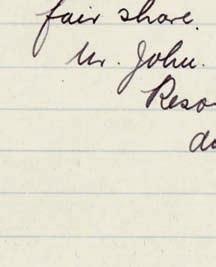 fair share.
Mr. John.
Reso
du